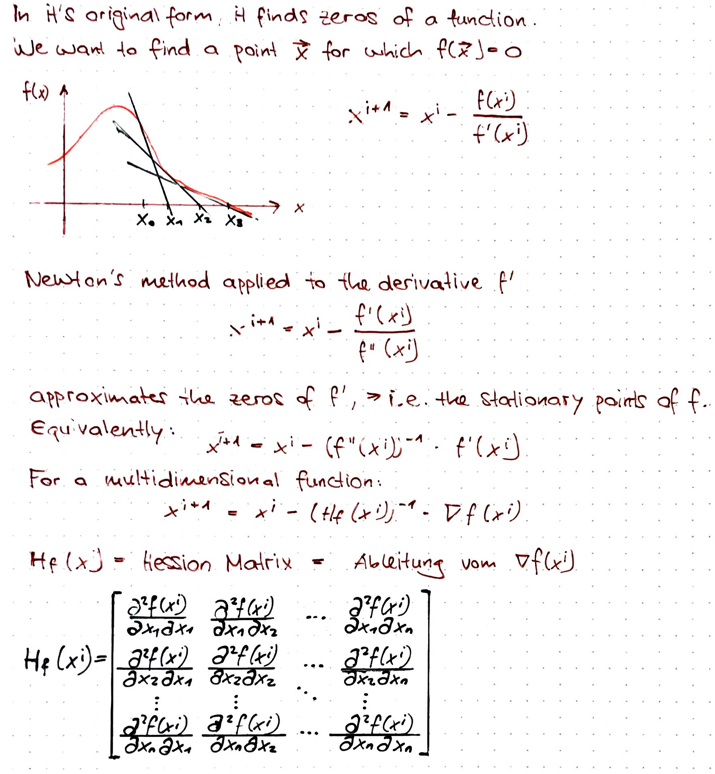 In it's original form, it finds zeros of a function.
We want to find a point x⃗ for which f(x⃗)=0
f(x)
x^{i+1} = x^i - f(x^i) / f'(x^i)
x
x₀ x₁ x₂ x₃
Newton's method applied to the derivative f'
x^{i+1} = x^i - f'(x^i) / f''(x^i)
approximates the zeros of f', → i.e. the stationary points of f.
Equivalently: x^{i+1} = x^i - (f''(x^i))^{-1} · f'(x^i)
For a multidimensional function:
x^{i+1} = x^i - (Hf(x^i))^{-1} · ∇f(x^i)
Hf(x) = Hession Matrix = Ableitung vom ∇f(x^i)
Hf(x^i) = [ ∂²f(x^i)/∂x₁∂x₁ ∂²f(x^i)/∂x₁∂x₂ ... ∂²f(x^i)/∂x₁∂xₙ
∂²f(x^i)/∂x₂∂x₁ ∂²f(x^i)/∂x₂∂x₂ ... ∂²f(x^i)/∂x₂∂xₙ
⋮ ⋮ ⋱ ⋮
∂²f(x^i)/∂xₙ∂x₁ ∂²f(x^i)/∂xₙ∂x₂ ... ∂²f(x^i)/∂xₙ∂xₙ ]